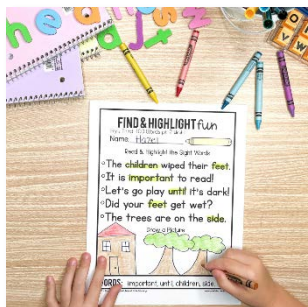 FIND & HIGHLIGHT fun
Name: Hazel
Read & Highlight the Sight Words
The children wiped their feet.
It is important to read!
Let's go play until it's dark!
Did your feet get wet?
The trees are on the side.
Draw a Picture
WORDS: important, until, children, side,